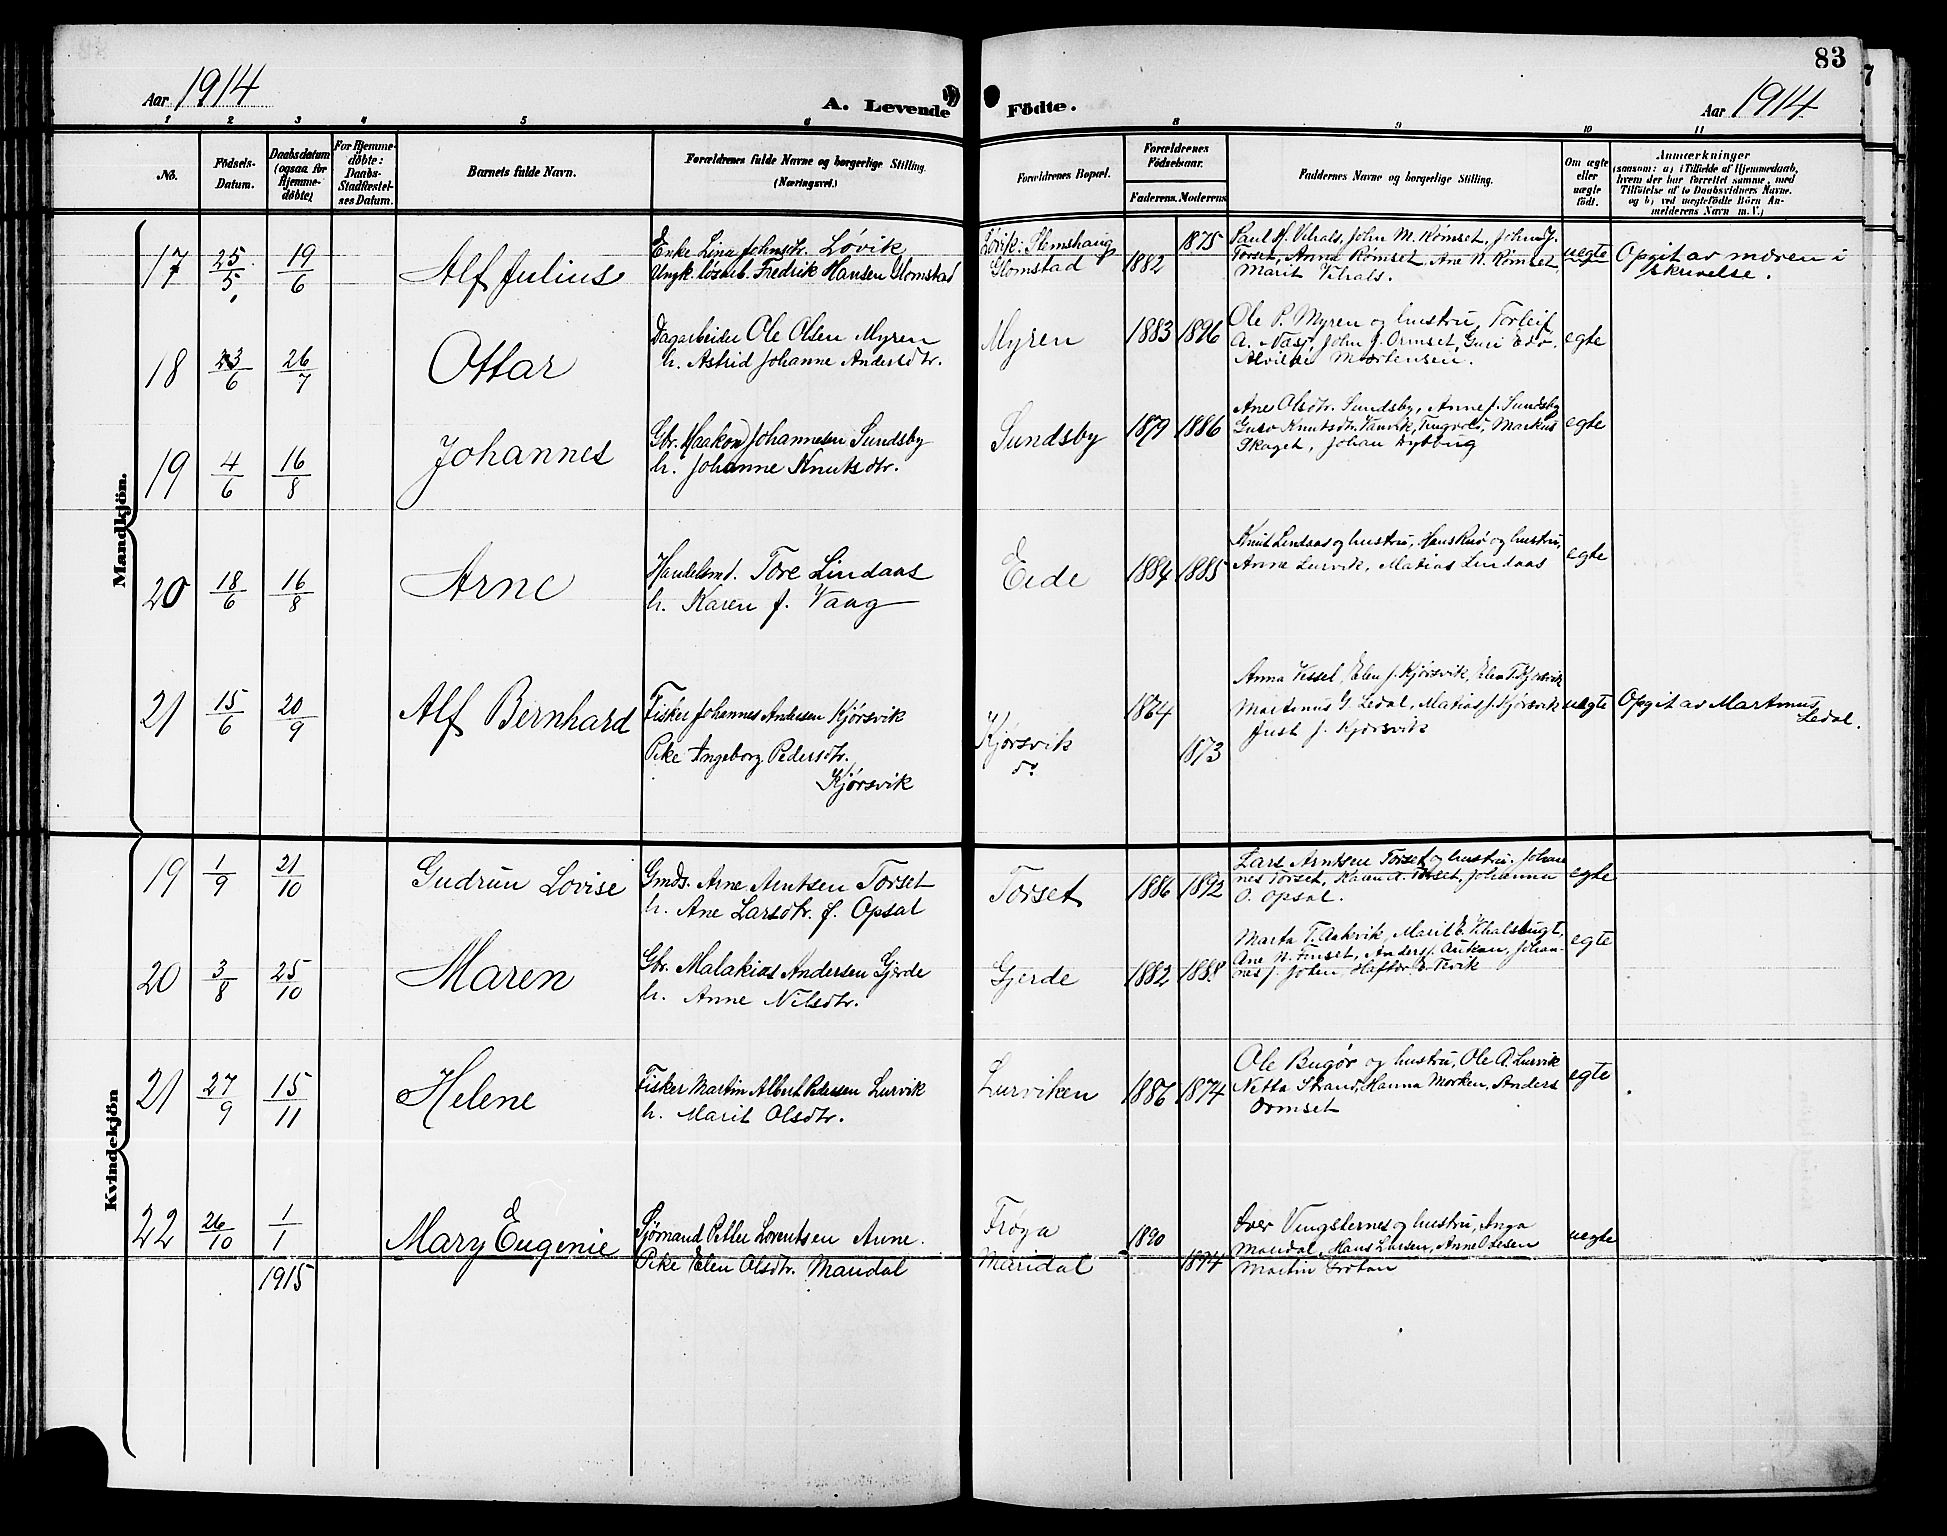 83
Aar 1914
A. Levende Födte.
Aar 1914
1 2 3 4 5 6 8 9 10 11
No.
Födsels-
Datum.
Daabsdatum
(ogsaa for
Hjemme-
døbte)
For Hjemme-
døbte:
Daabs-
Stadfæstel-
ses Datum.
Barnets fulde Navn.
Forældrenes fulde Navne og borgerlige Stilling.
(Næringsvei.)
Forældrenes Bopæl.
Forældrenes
Fødselsaar.
Faderens. Moderens.
Faddernes Navne og borgerlige Stilling.
Om ægte
eller
uægte
født.
Anmærkninger
(saasom: a) i Tilfælde af Hjemmedaab,
hvem der har forrettet samme, med
Tilføielse af to Daabsvidners Navne.
og b) ved uægtefødte Börn An-
melderens Navn m. V.)
Mandkjön.
17 25/5 19/6 Alf Julius
Enke Lina Johnsdtr. Løvik
Ungk. løsarb. Fredrik Hansen Glomstad
Løvik: Stemshaug
Glomstad
1882 1875
Paul H. Vihals, John M. Rømset, John J.
Torset, Anna Rømset, Ane N. Rømset
Marit Vihals.
uegte
Opgit av moren i
skrivelse.
18 23/6 26/7 Ottar
Dagarbeider Ole Olsen Myren
h. Astrid Johanne Andersdtr.
Myren 1883 1896
Ole P. Myren og hustru, Torleif
A. Næss, John J. Ormset, Guri Edø,
Alvilde Mortensen.
egte
19 4/6 16/8 Johannes
Gbr. Haakon Johannesen Sundsby
h. Johanne Knutsdtr.
Sundsby 1879 1886
Ane Olsdtr. Sundsby, Anne J. Sundsby
Guro Knutsdtr. Vaavik, Tingvold, Markus
Skaget, Johan
egte
20 18/6 16/8 Arne
Handelsm. Tore Lindaas
h. Karen f. Vaag
Eide 1884 1885
Knut Lindaas og hustru, Hans Rø og hustru,
Anne Lurvik, Matias Lindaas
egte
21 15/6 20/9 Alf Bernhard
Fisker Johannes Andersen Kjørsvik
Pike Ingeborg Pedersdtr.
Kjørsvik
Kjørsvik
do
1864 1873
Anna Vessel, Elen J. Kjørsvik, Elen T. Kjørsvik
Martinus G. Ledal, Matias J. Kjørsvik
Just J. Kjørsvik
uegte
Opgit av Martinus
Ledal.
Kvindekjön
19 1/9 21/10 Gudrun Lovise
Gmds. Arne Arntsen Torset
h. Ane Larsdtr. f. Opsal
Torset 1886 1892
Lars Arntsen Torset og hustru. Johan
nes Torset, Torset, Johanna
O. Opsal.
egte
20 3/8 25/10 Maren
Gbr. Malakias Andersen Gjerde
h. Anne Nilsdtr.
Gjerde 1882 1888
Marta T. Aakvik, Marit E. Vihalsbugt,
Ane N. Finset, Anders J. Johan-
nes J. Haftor E. Tevik
egte
21 27/9 15/11 Helene
Fisker Martin Albert Pedersen Lurvik
h. Marit Olsdtr.
Lurviken 1886 1874
Ole Bugør og hustru, Ole A. Lurvik
Netta Strand, Hanna Morken, Anders
Ormset
egte
22 26/10 1/1 1915 Mary Eugenie
Sjømand Petter Lorentsen Aune.
Pike Elen Olsdtr. Mandal
Frøya
Mandal
1890 1894
Iver Vingsternes og hustru, Inga
Mandal, Hans Larsen, Anne Olesen
Martin
uegte